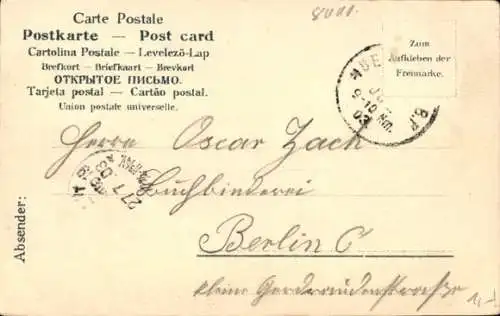 Carte Postale
Postkarte — Post card
Cartolina Postale — Levelező-Lap
Brefkort — Briefkaart — Brevkort
ОТКРЫТОЕ ПИСЬМО.
Tarjeta postal — Cartão postal.
Union postale universelle.
Zum
Aufkleben der
Freimarke.
9-10 NM.
03
27 1
03
Herrn Oscar Zach
Buchbinderei
Berlin C
kleine
Absender: